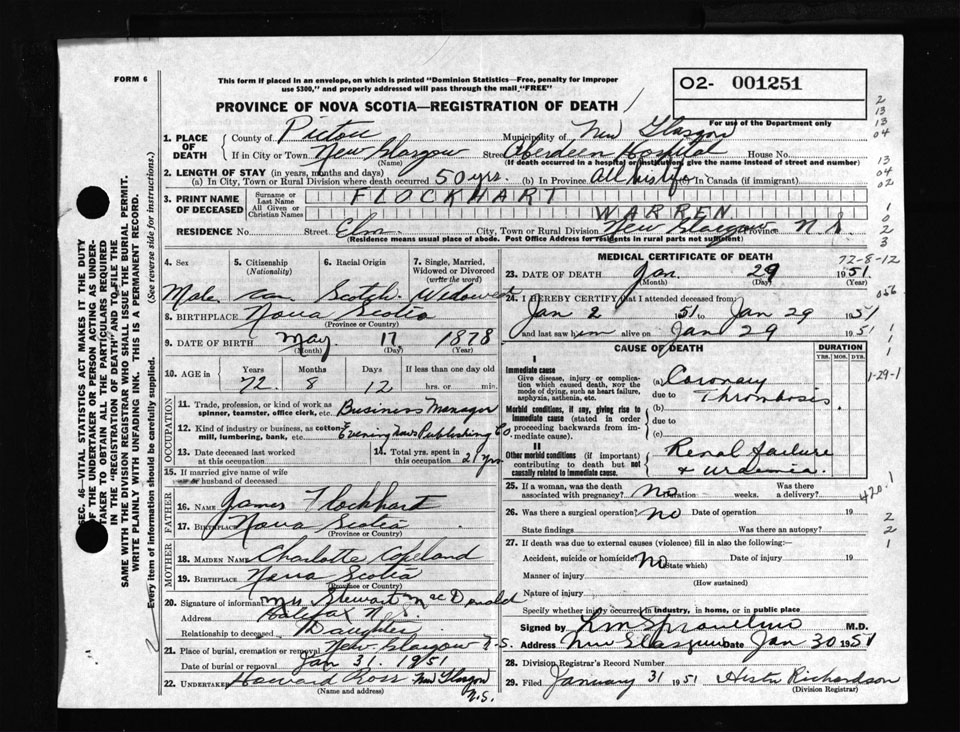 FORM 6
This form if placed in an envelope, on which is printed "Dominion Statistics—Free, penalty for improper
use $300," and properly addressed will pass through the mail "FREE"
PROVINCE OF NOVA SCOTIA—REGISTRATION OF DEATH
O2- 001251
For use of the Department only
1. PLACE OF DEATH
County of Pictou Municipality of New Glasgow
If in City or Town New Glasgow Street Aberdeen Hospital House No.
(Name) (If death occurred in a hospital or institution, give the name instead of street and number)
2. LENGTH OF STAY (in years, months and days)
(a) In City, Town or Rural Division where death occurred 50 yrs. (b) In Province All his life (c) In Canada (if immigrant)
3. PRINT NAME OF DECEASED
Surname or Last Name FLOCKHART
All Given or Christian Names WARREN
RESIDENCE No. Street Elm City, Town or Rural Division New Glasgow Province N.S.
(Residence means usual place of abode. Post Office Address for residents in rural parts not sufficient)
4. Sex
Male
5. Citizenship
(Nationality)
Can
6. Racial Origin
Scotch
7. Single, Married,
Widowed or Divorced
(write the word)
Widowed
8. BIRTHPLACE Nova Scotia
(Province or Country)
9. DATE OF BIRTH May 17 1878
(Month) (Day) (Year)
10. AGE in Years Months Days If less than one day old
72 8 12 hrs. or min.
OCCUPATION
11. Trade, profession, or kind of work as
spinner, teamster, office clerk, etc. Business Manager
12. Kind of industry or business, as cotton-
mill, lumbering, bank, etc. Evening News Publishing Co.
13. Date deceased last worked
at this occupation
14. Total yrs. spent in
this occupation 21 yrs.
15. If married give name of wife
or husband of deceased
FATHER
16. Name James Flockhart
17. Birthplace Nova Scotia
(Province or Country)
MOTHER
18. Maiden Name Charlotte Copeland
19. Birthplace Nova Scotia
(Province or Country)
20. Signature of informant Mrs Stewart MacDonald
Address Halifax N.S.
Relationship to deceased Daughter
21. Place of burial, cremation or removal New Glasgow N.S.
Date of burial or removal Jan 31. 1951
22. Undertaker Howard Ross New Glasgow N.S.
(Name and address)
MEDICAL CERTIFICATE OF DEATH
72-8-12
23. DATE OF DEATH Jan. 29 1951
(Month) (Day) (Year)
24. I HEREBY CERTIFY that I attended deceased from:
Jan 2 1951 to Jan 29 1951
and last saw him alive on Jan 29 1951
CAUSE OF DEATH
DURATION
YRS. MOS. DYS.
I
Immediate cause
Give disease, injury or complica-
tion which caused death, not the
mode of dying, such as heart failure,
asphyxia, asthenia, etc.
(a) Coronary
due to Thrombosis
Morbid conditions, if any, giving rise to
immediate cause (stated in order
proceeding backwards from im-
mediate cause).
(b)
due to
(c)
II
Other morbid conditions (if important)
contributing to death but not
causally related to immediate cause.
Renal failure
& uraemia.
25. If a woman, was the death
associated with pregnancy? No Duration weeks. Was there
a delivery?
26. Was there a surgical operation? No Date of operation 19
State findings Was there an autopsy?
27. If death was due to external causes (violence) fill in also the following:—
Accident, suicide or homicide? No Date of injury 19
(State which)
Manner of injury
(How sustained)
Nature of injury
Specify whether injury occurred in industry, in home, or in public place
Signed by M.D.
Address New Glasgow Date Jan 30 1951
28. Division Registrar's Record Number
29. Filed January 31 1951 Richardson
(Division Registrar)
SEC. 46—VITAL STATISTICS ACT MAKES IT THE DUTY
OF THE UNDERTAKER OR PERSON ACTING AS UNDER-
TAKER TO OBTAIN ALL THE PARTICULARS REQUIRED
IN THE "REGISTRATION OF DEATH" AND TO FILE THE
SAME WITH THE DIVISION REGISTRAR WHO SHALL ISSUE THE BURIAL PERMIT.
WRITE PLAINLY WITH UNFADING INK. THIS IS A PERMANENT RECORD.
Every item of information should be carefully supplied. (See reverse side for instructions.)
2
13
13
04
13
04
02
1
0
2
3
056
1
1
1
1-29-1
420.1
2
2
1